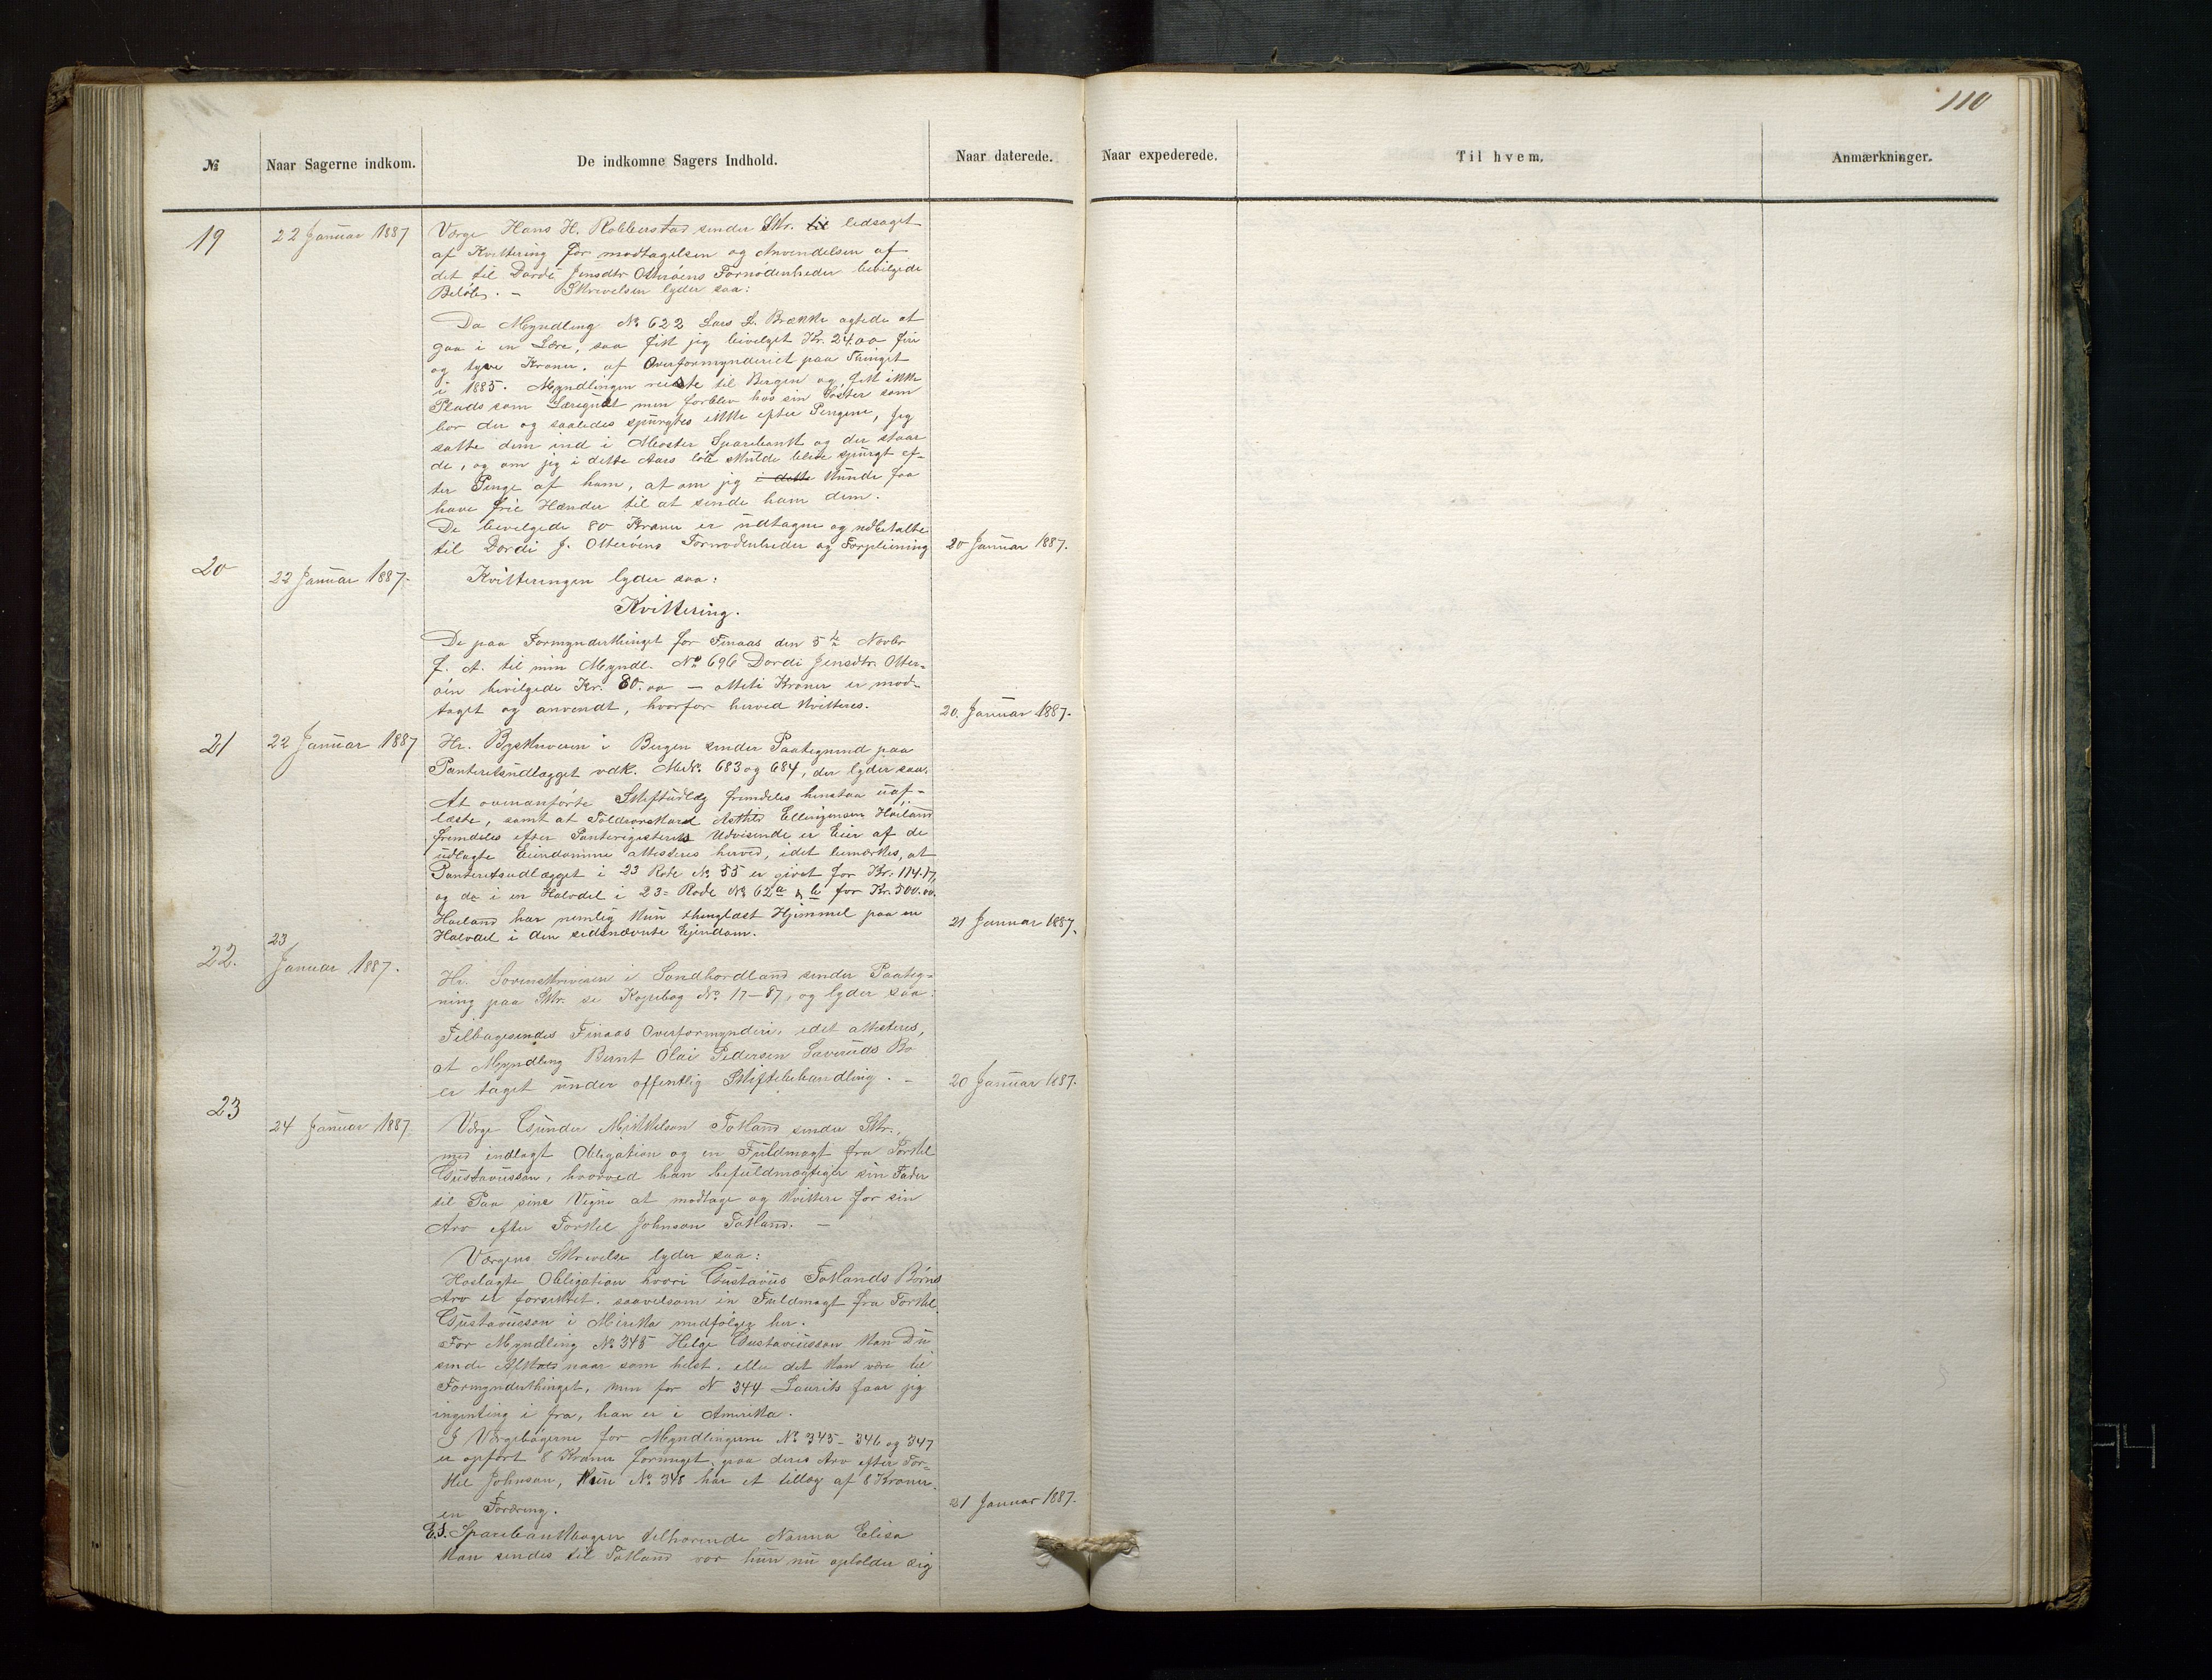 110
№ Naar Sagerne indkom. De indkomne Sagers Indhold. Naar daterede. Naar expederede. Til hvem. Anmærkninger.
19 22 Januar 1887 Værge Hans H. Robberstad sender Skr. til ledsaget
af Kvittering for modtagelsen og Anvendelsen af
det til Dordi Jensdtr Otterøens Fornødenheder bevilgede
Beløb. – Skrivelsen lyder saa:
Da Myndling № 622 Lars L. Brække agtede at
gaa i en Lære, saa fik jeg bevilget Kr. 24.00 fire
og tyve Kroner. af Overformynderiet paa Thinget
i 1885. Myndlingen reiste til Bergen og fik ikke
Plads som Læregut men forblev hos sin Søster som
bor der og saaledes spurgtes ikke efter Pengene, jeg
satte dem ind i Moster Sparebank og der staar
de, og om jeg i dette Aars løb skulde blive spurgt ef-
ter Penge af ham, at om jeg i dette kunde faa
have frie Hænder til at sende ham dem.
De bevilgede 80 Kroner er udtagne og udbetalte
til Dordi J. Otterøens Fornødenheder og Forpleining 20 Januar 1887.
20 22 Januar 1887. Kvitteringen lyder saa:
Kvittering.
De paa Formynderthinget for Finaas den 5te Novbr
f. A. til min Myndl. № 696 Dordi Jensdtr. Otter-
øen bevilgede Kr. 80.00 – otteti Kroner er mod-
taget og anvendt, hvorfor herved kvitteres. 20. Januar 1887.
21 22 Januar 1887 Hr. Byskriveren i Bergen sender Paategnind paa
Panteretsudlægget vdk. M.№. 683 og 684, der lyder saa.
At ovenanførte Skifteudlæg fremdeles henstaa uaf-
læste, samt at Toldroorskarl Ellingensen Høiland
fremdeles efter Panteregisterets Udvisende er Eier af de
udlagte Eiendomme attesteres herved, idet bemærkes, at
Panteretsudlægget i 23 Rode № 55 er givet for Kr. 114.17,
og de i en Halvdel i 23= Rode № 62a & b for Kr. 500.00.
Høiland har nemlig kun thinglæst Hjemmel paa en
Halvdel i den sidsnævnte Ejendom. 21 Januar 1887.
22. 23 Januar 1887. Hr. Sorenskriveren i Søndhordland sender Paateg-
ning paa Skr. se Kopiebog № 17–87, og lyder saa:
Tilbagesendes Finaas Overformynderi, idet attesteres,
at Myndling Bernt Olai Pedersen Løveruds Bo
er taget under offentlig Skiftebehandling. – 20 Januar 1887.
23 24 Januar 1887. Værge Gunder Mikkelson Totland sender Skr.,
med indlagt Obligation og en Fuldmagt fra Torkel
Gustavusson, hvorved han befuldmægtiger sin Fader
til Paa sine Vegne at modtage og kvittere for sin
Arv efter Torkel Johnson Totland. –
Værgens Skrivelse lyder saa:
Hoslagte Obligation hvori Gustavus Totlands Børns
Arv er forsikket. saavelsom en Fuldmagt fra Torkel
Gustavusson i Merika medfølger her.
For Myndling № 345 Helge Gustavusson kan Du
sende naar som helst. eller det kan være til
Formynderthinget, men for № 344 Laurits faar jeg
ingenting i fra, han er i Amerika.
I Værgebøgerne for Myndlingerne № 345–346 og 347
er opført 8 Kroner formeget, paa deres Arv efter Tor-
kel Johnson, kun № 348 har et tillæg af 8 Kroner.
en Fordring. 21 Januar 1887.
E.S. Sparebankbogen tilhørende Nanna Elisa
kan sendes til Totland vor hun nu opholder sig